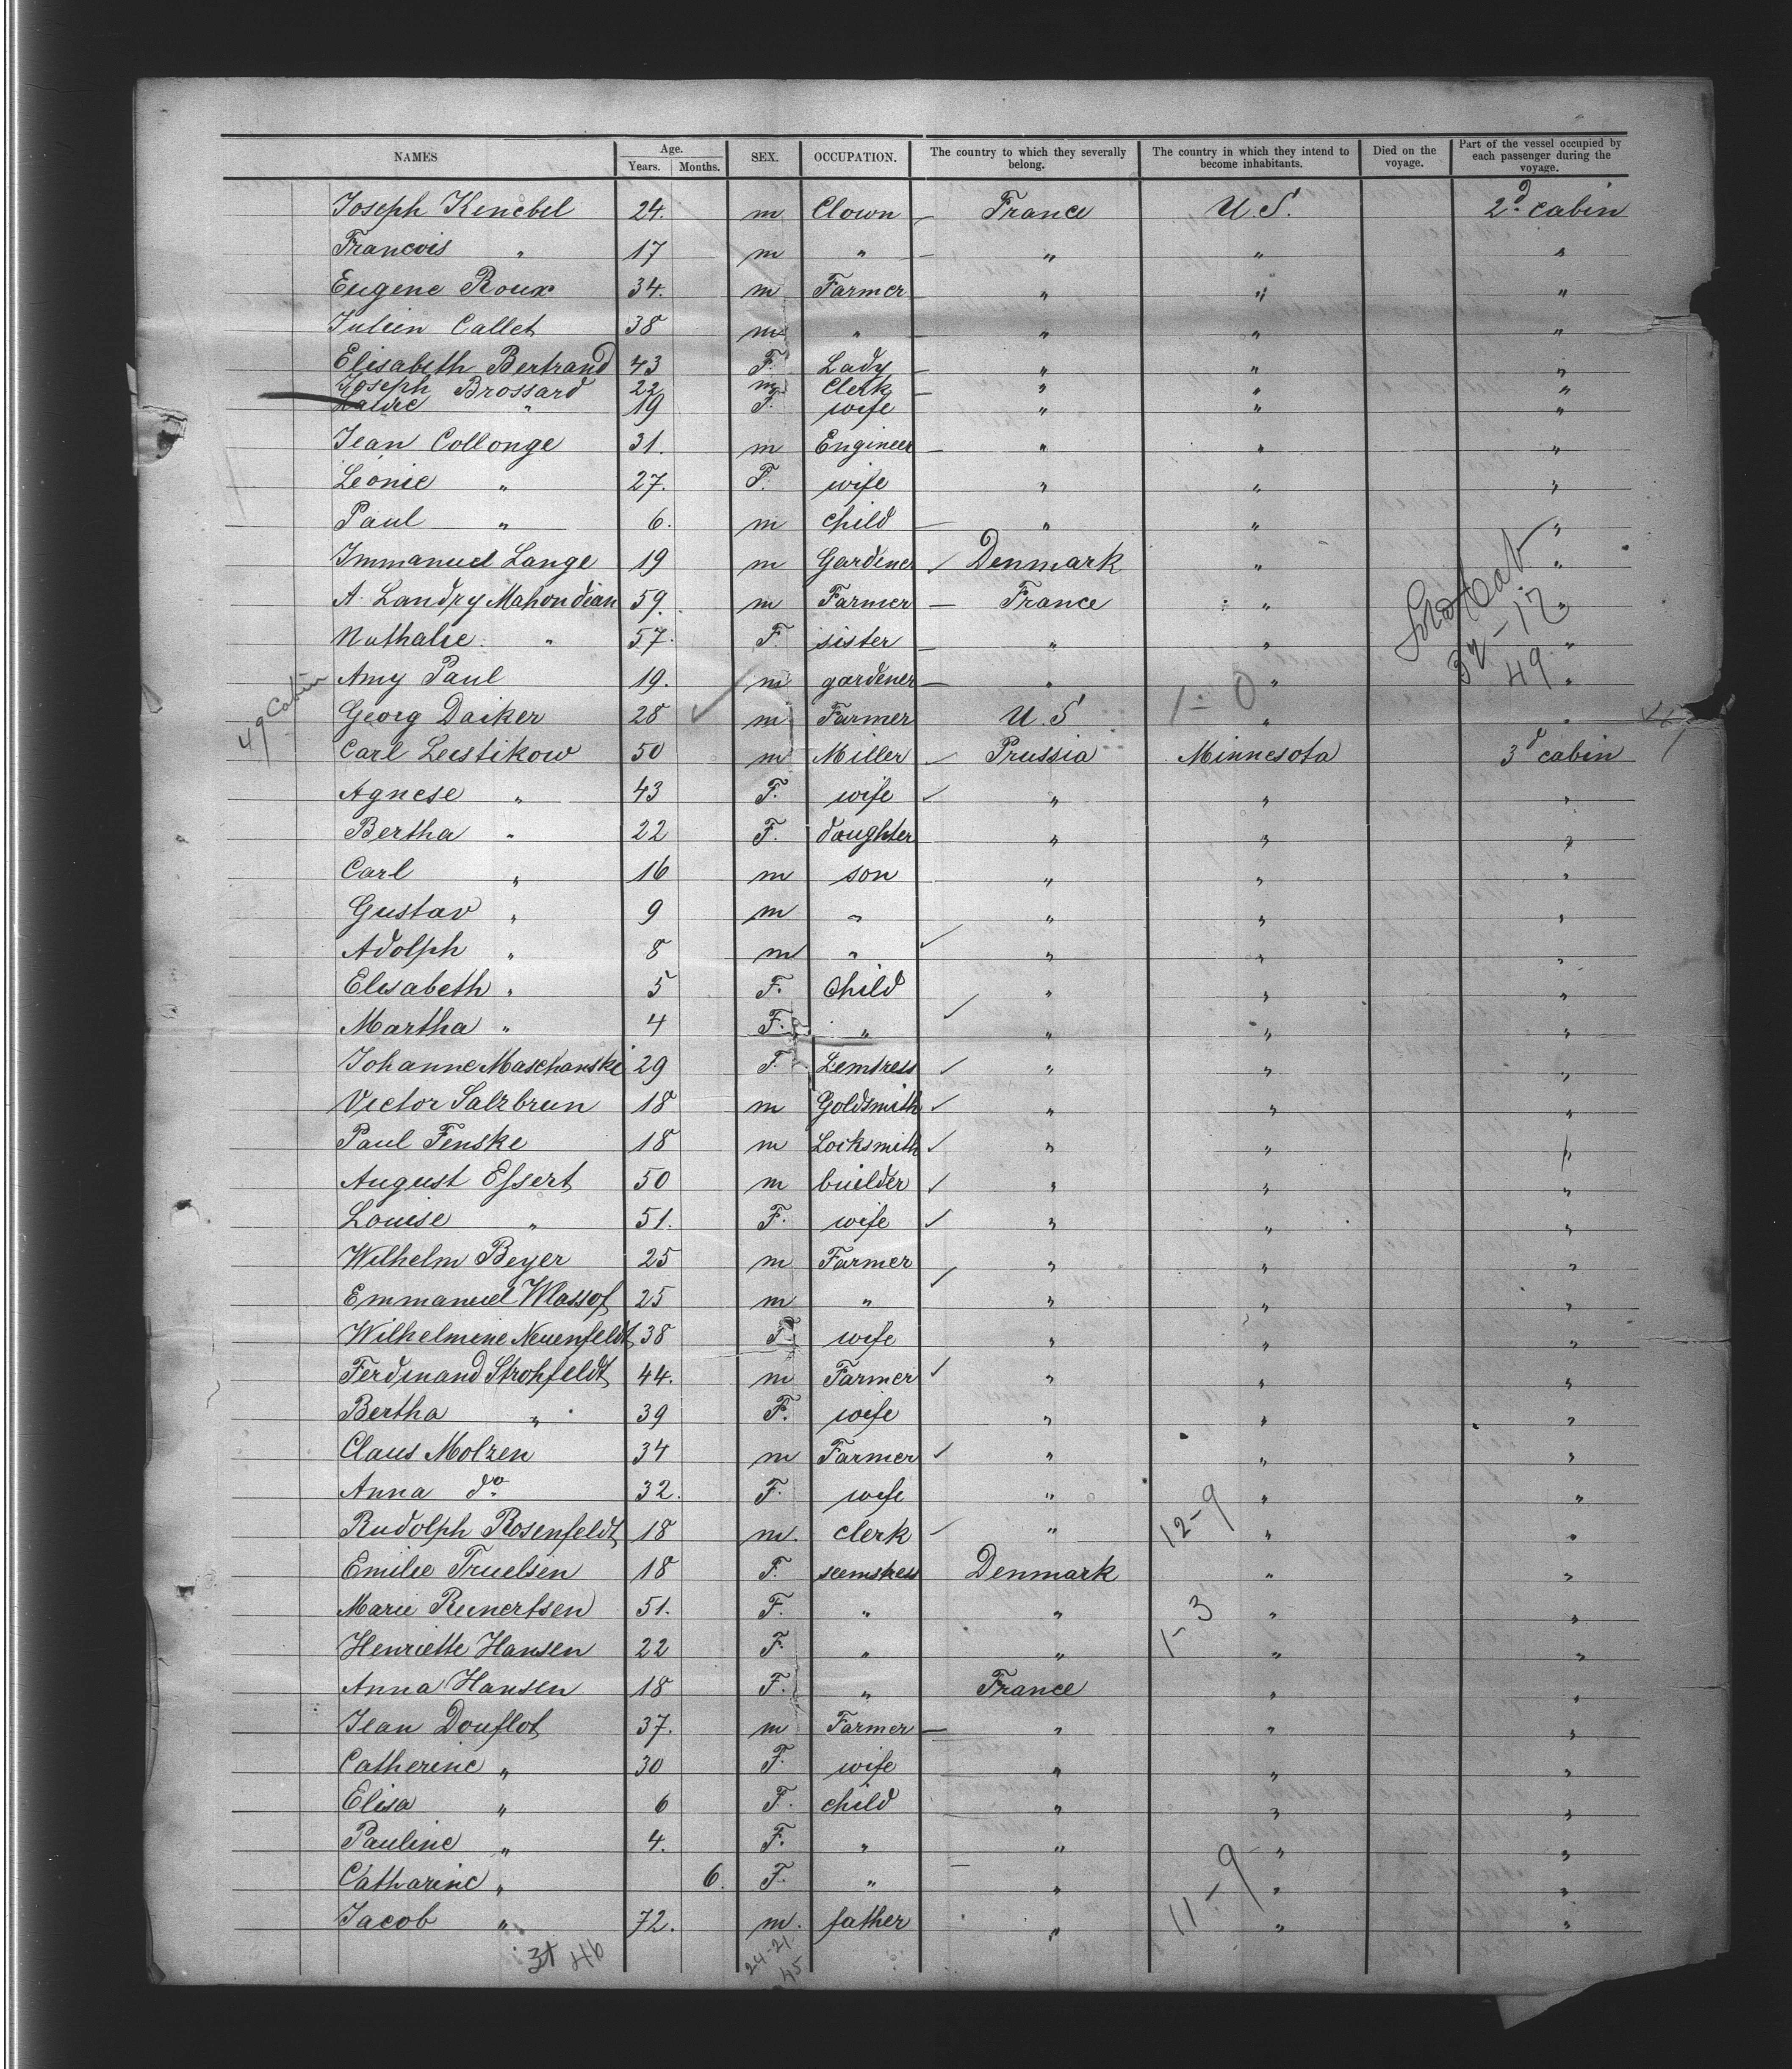 NAMES Age. Years. Months. SEX. OCCUPATION. The country to which they severally belong. The country in which they intend to become inhabitants. Died on the voyage. Part of the vessel occupied by each passenger during the voyage.
Joseph Kenebel 24. m Clown — France U.S. 2d cabin
Francois " 17 m " — " " "
Eugene Roux 34. m Farmer — " " "
Julien Callet 38 m " — " " "
Elisabeth Bertrand 43 F. Lady — " " "
Joseph Brossard 22 m Clerk — " " "
" 19 F. wife " " "
Jean Collonge 31. m Engineer — " " "
Léonie " 27. F. wife " " "
Paul " 6. m child — " " "
Immanuel Lange 19 m Gardener ✓ Denmark " "
A. Landry Mahondeau 59. m Farmer — France " "
Nathalie " 57. F sister — " " "
32-17
Amy Paul 19. m gardener — " " "
49
49 Cabin
Georg Daiker 28 ✓ m Farmer U.S 1-0 " "
Carl Leistikow 50 m Miller ✓ Prussia Minnesota 3d cabin
Agnese " 43 F. wife ✓ " " "
Bertha " 22 F. daughter " " "
Carl " 16 m son " " "
Gustav " 9 m " " " "
Adolph " 8 m " ✓ " " "
Elisabeth " 5 F. Child " " "
Martha " 4 F. " ✓ " " "
Johanne Maschanski 29 F. Semstress ✓ " " "
Victor Salzbrun 18 m Goldsmith ✓ " " "
Paul Fenske 18 m Locksmith ✓ " " "
August Essert 50 m builder ✓ " " "
Louise " 51. F. wife ✓ " " "
Wilhelm Beyer 25 m Farmer " " "
Emmanuel Wlassof 25 m " ✓ " " "
Wilhelmine Neuenfeldt 38 F. wife " " "
Ferdinand Strohfeldt 44. m Farmer ✓ " " "
Bertha " 39 F. wife " " "
Claus Molzen 34 m Farmer ✓ " " "
Anna do 32. F. wife " " "
Rudolph Rosenfeldt 18 m. clerk ✓ " 12-9 " "
Emilie Truelsen 18 F. seemstress Denmark " "
Marie Reinertsen 51. F. " " 1-3 " "
Henriette Hansen 22 F. " " " "
Anna Hansen 18 F. " France " "
Jean Douflot 37. m Farmer — " " "
Catherine " 30 F. wife " " "
Elisa " 6 F. child " " "
Pauline " 4. F. " " " "
Catharine " 6. F. " " " "
Jacob " 72. m. father " 11-9 " "
46 24-21
45